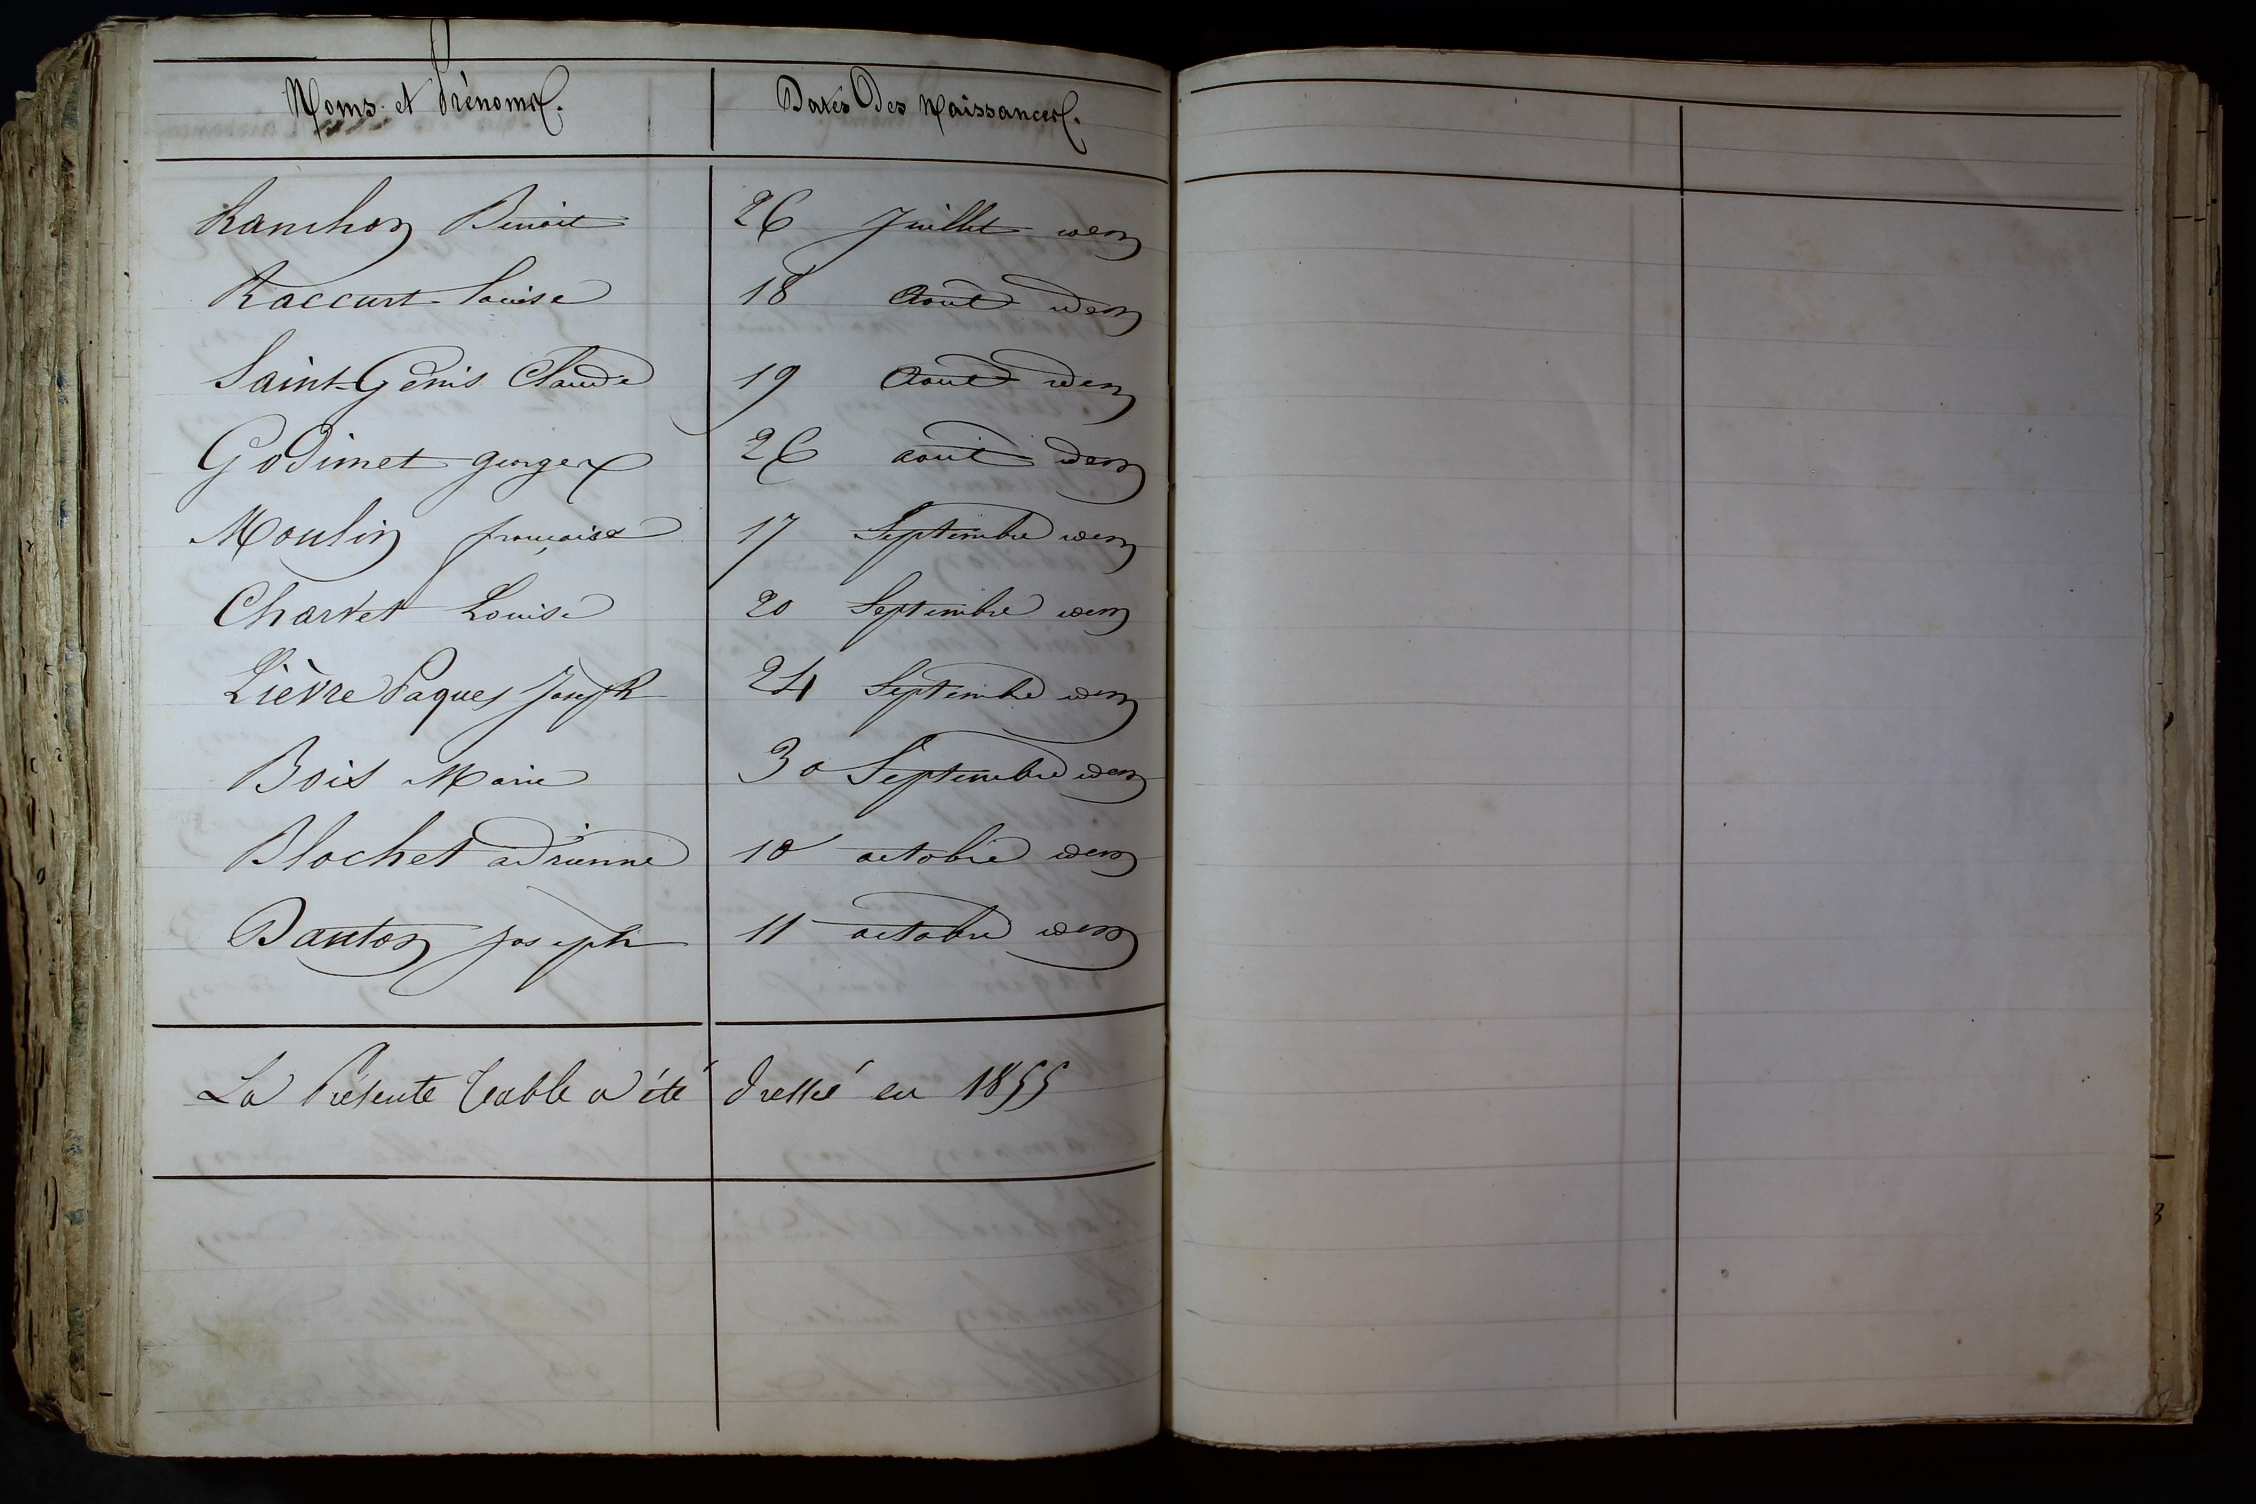 Noms et Prénoms. Dates Des Naissances.
Ranchon Benoit 26 Juillet idem
Raccurt Louise 18 Aout idem
Saint-Genis Claude 19 Aout idem
Godimet georges 26 aout idem
Moulin françoise 17 Septembre idem
Charvet Louise 20 Septembre idem
Lièvre Paques Joseph 24 Septembre idem
Bois Marie 30 Septembre idem
Blochet adrienne 10 octobre idem
Danton joseph 11 octobre idem
La Présente Table a été dressé en 1855